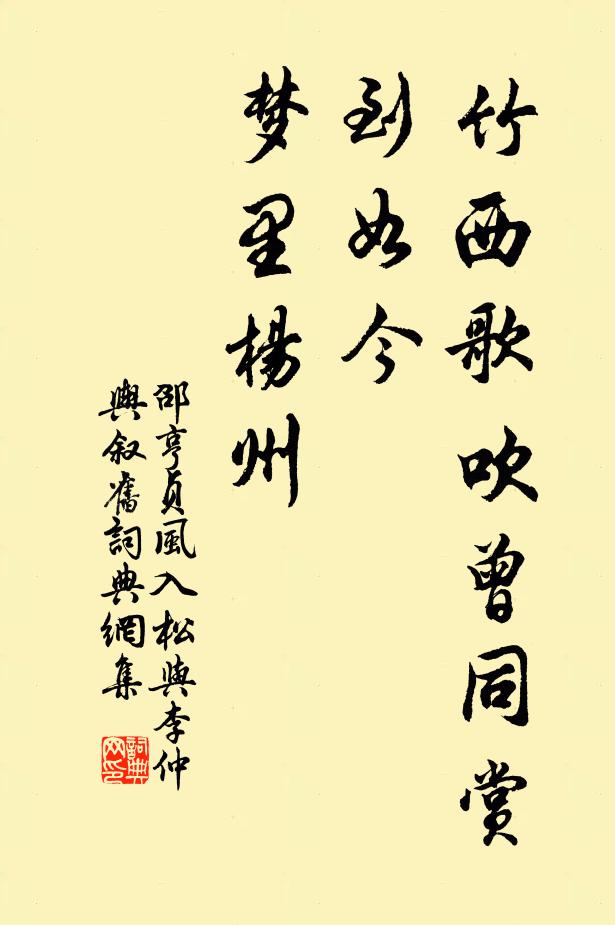 竹西歌吹曾同赏
到如今
梦里杨州
邵亨贞风入松与李仲
與叙舊詞典網集
詞典
网印